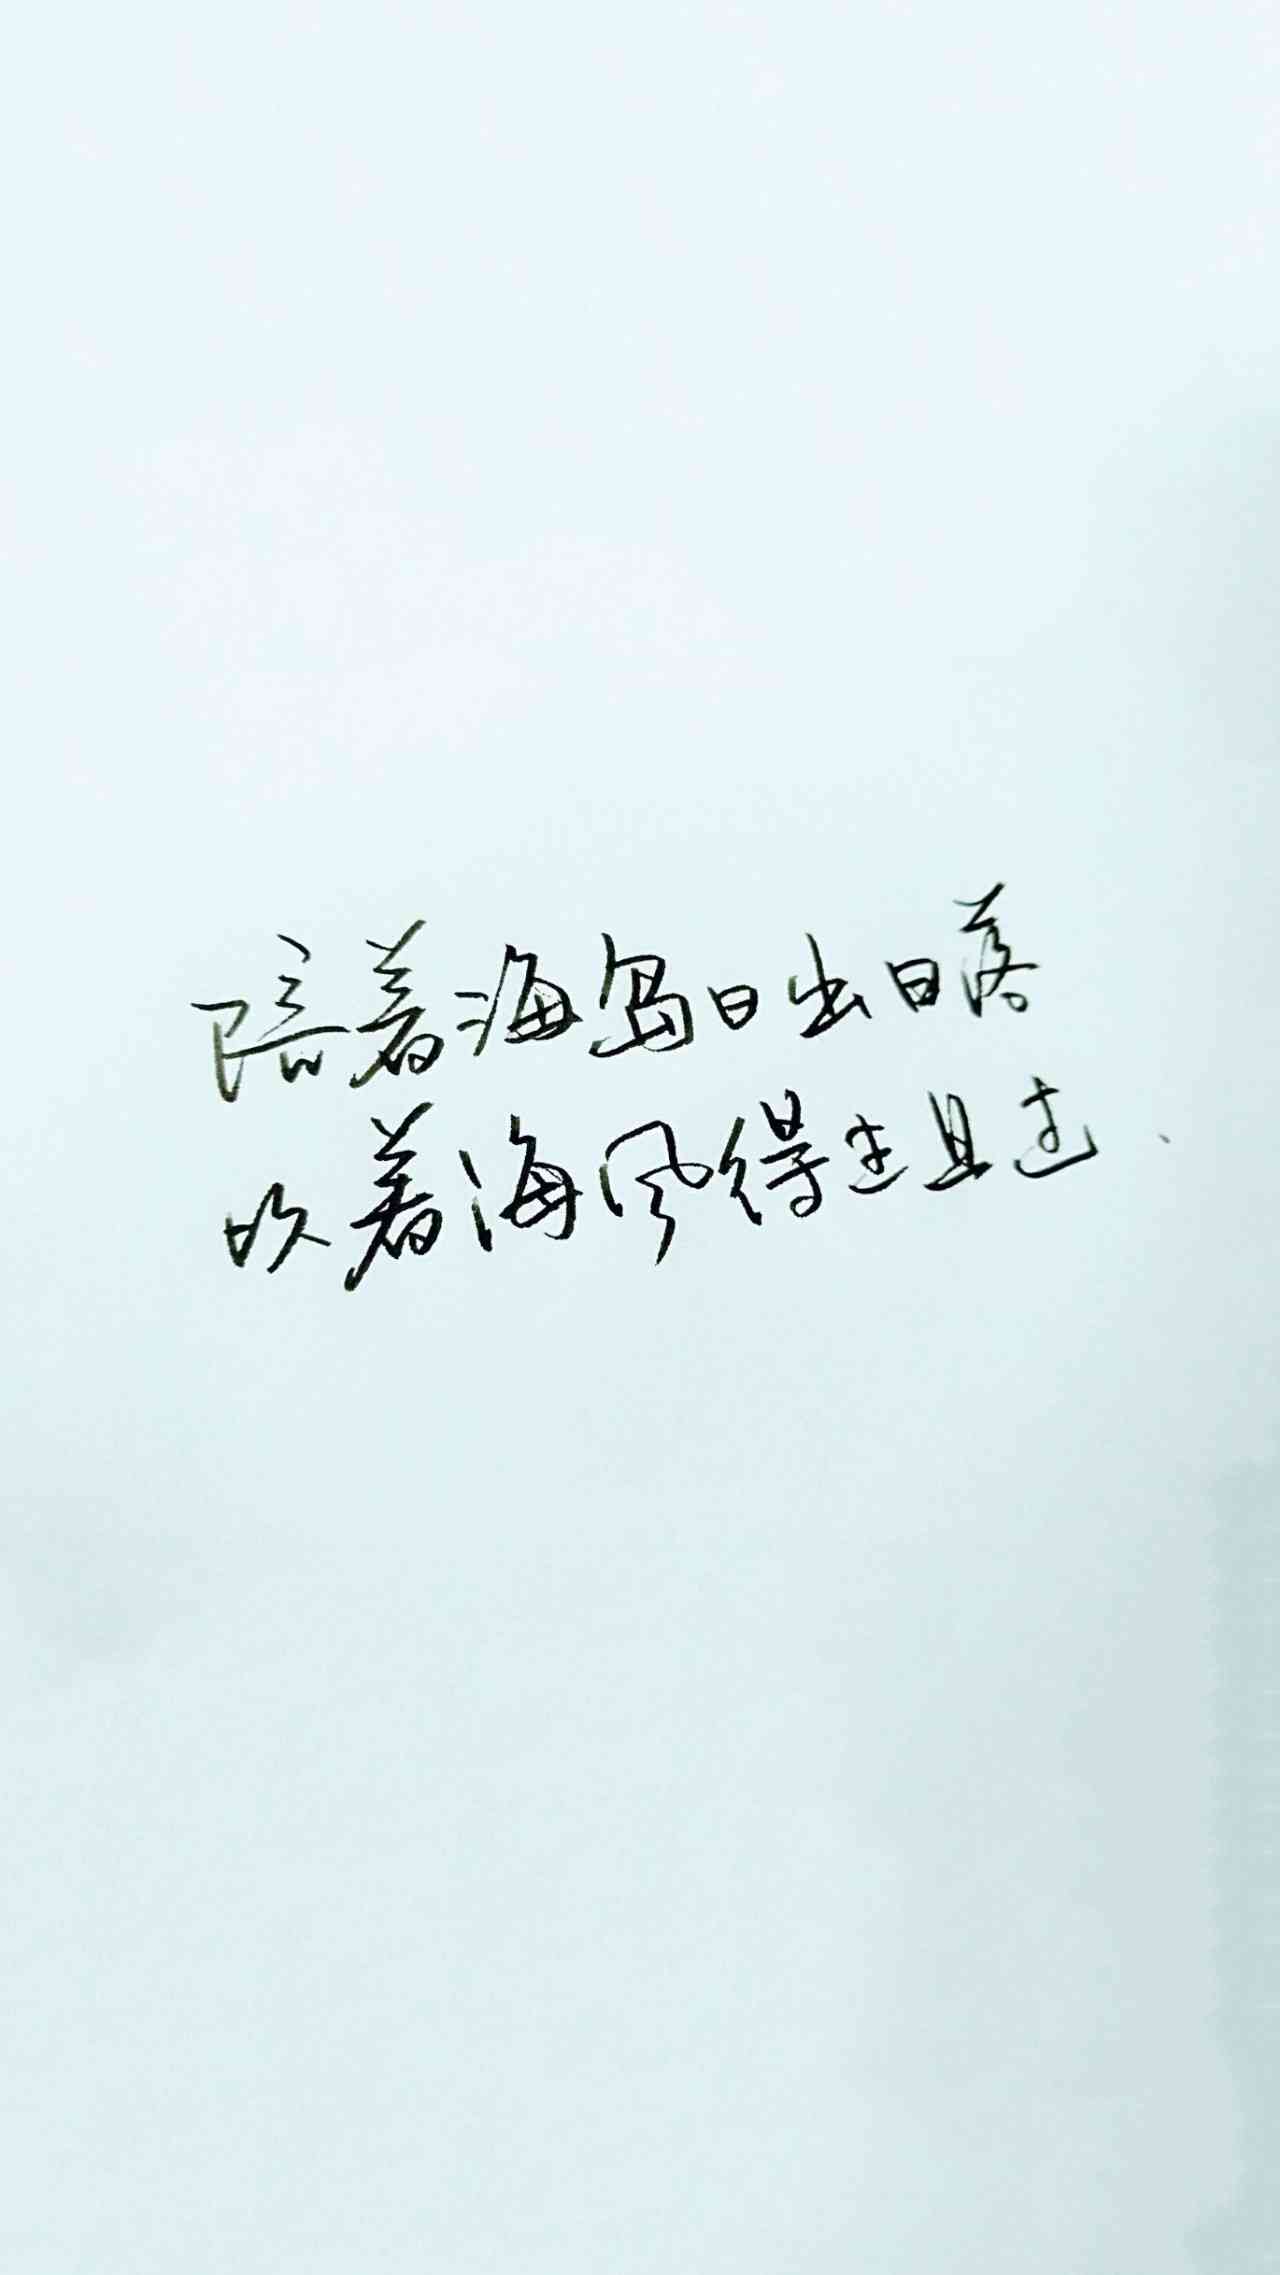 陪着海岛日出日落
吹着海风得过且过